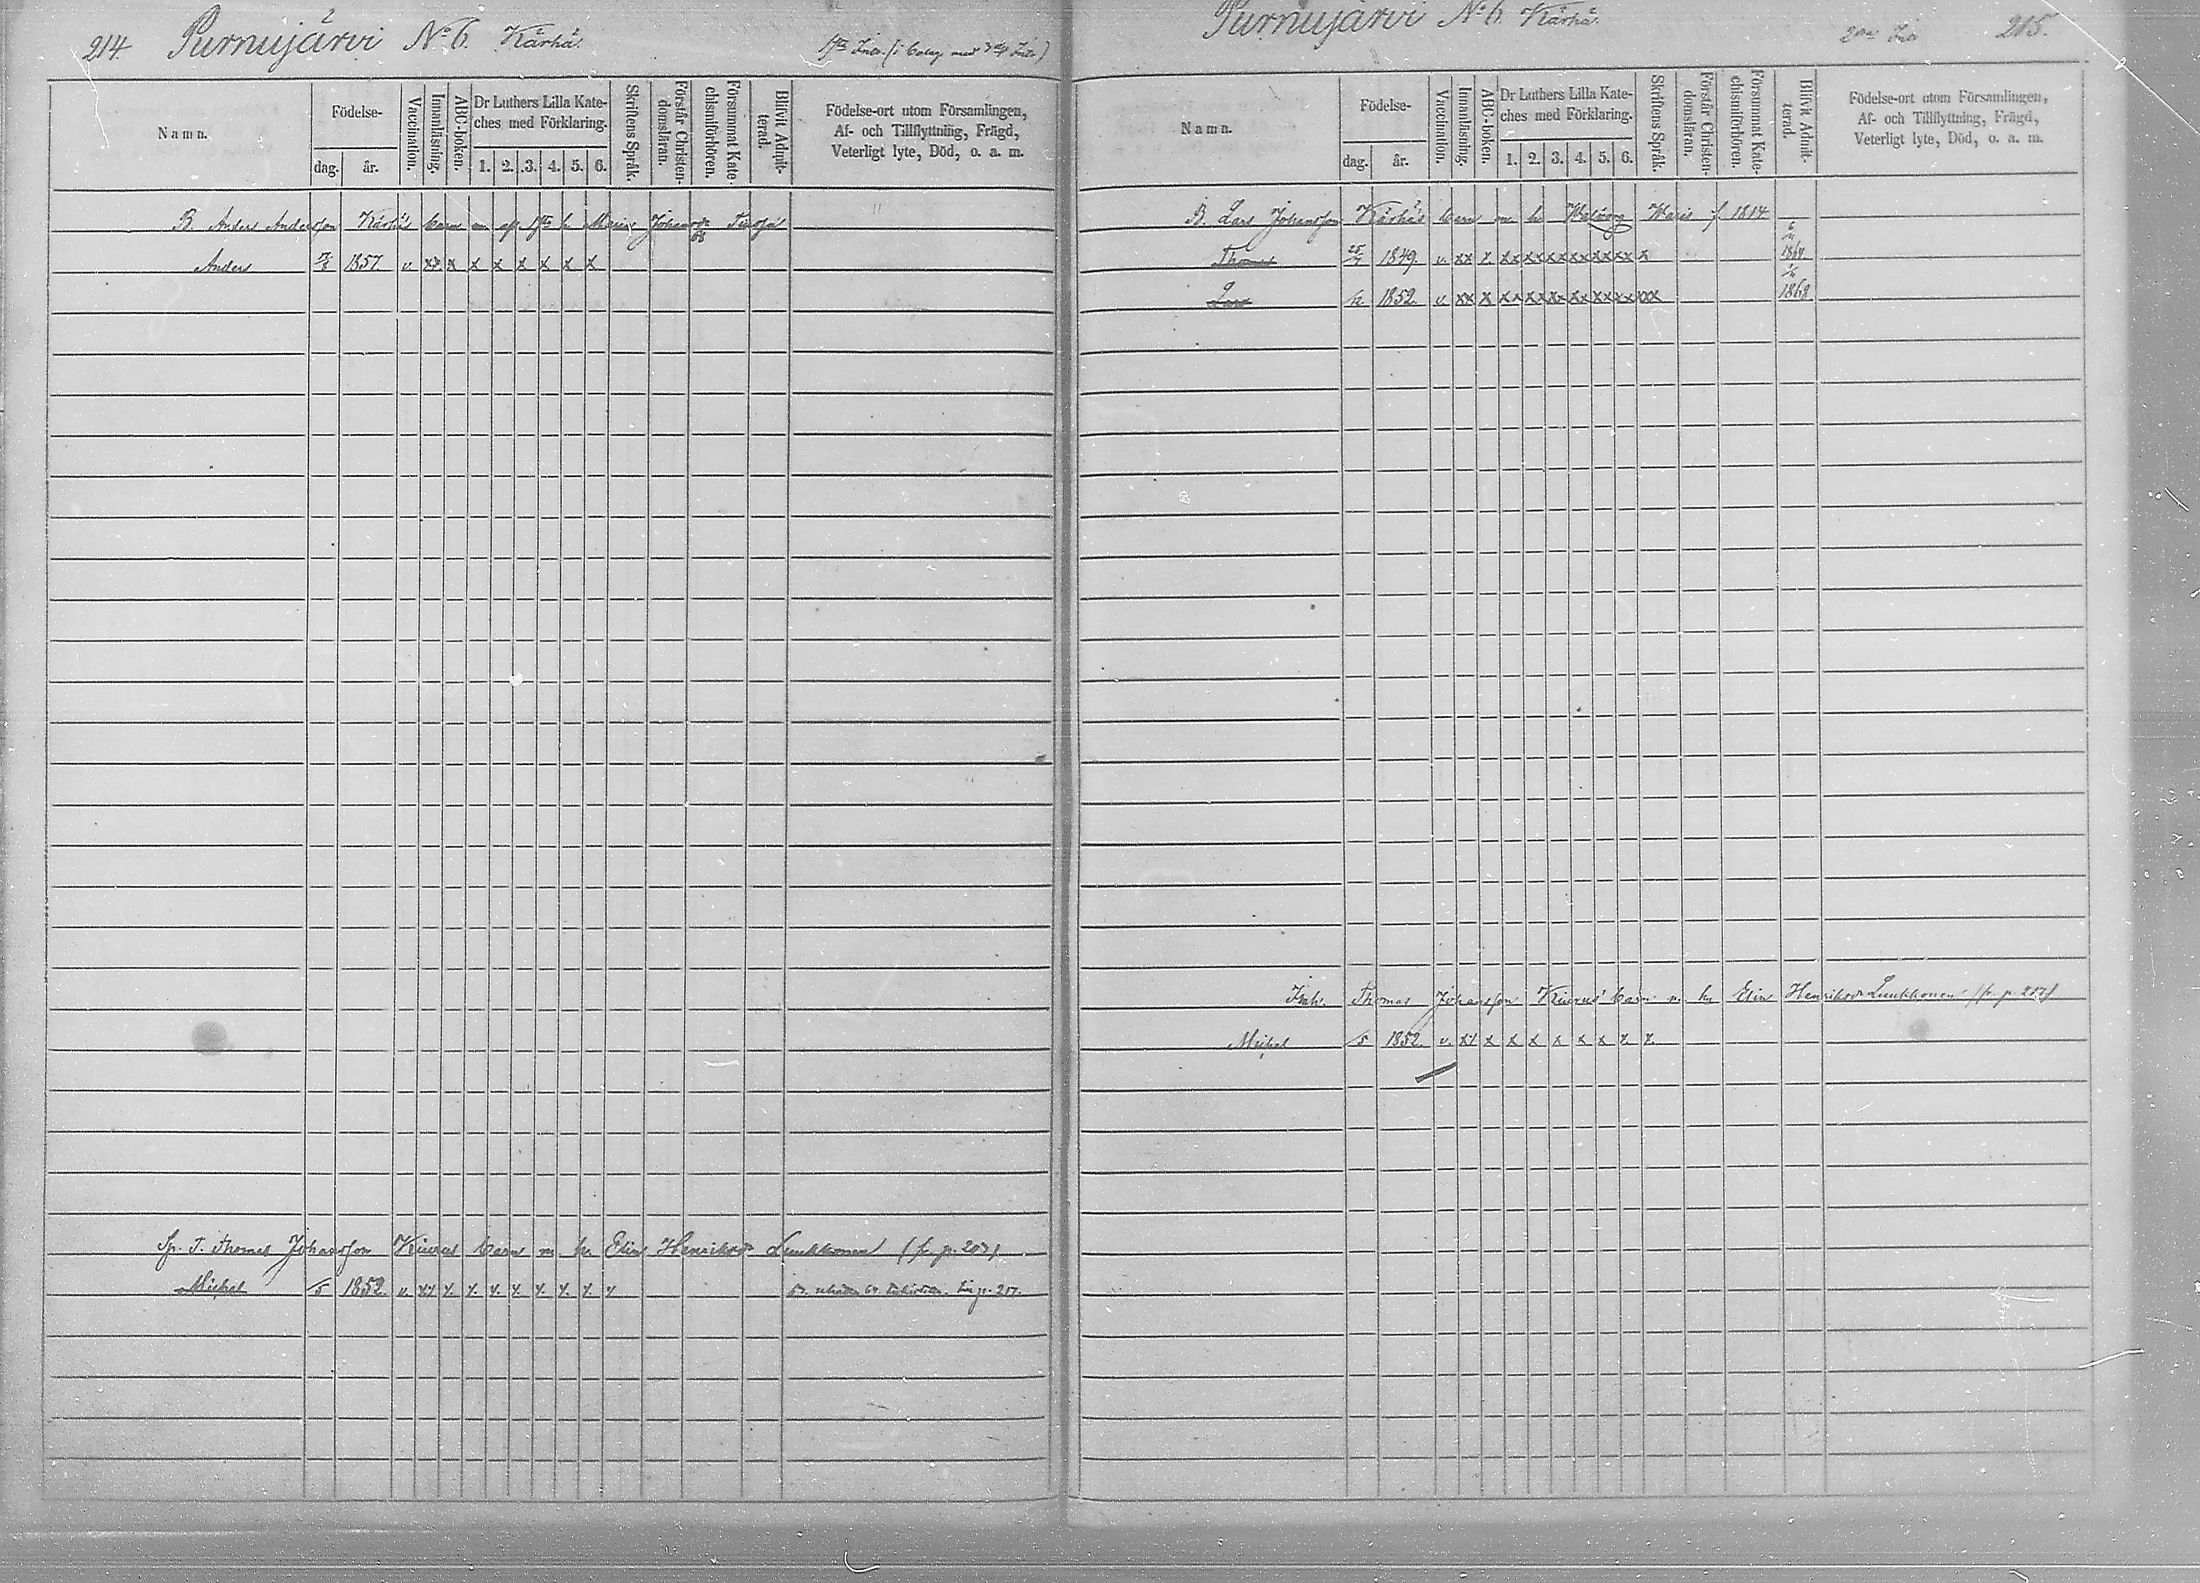 214. Purnujärvi No 6. Kärhä.
Namn.
Födelse-
dag.
år.
Vaccination.
Innanläsning.
ABC-boken.
Dr Luthers Lilla Kate-
ches med Förklaring.
1. 2. 3. 4. 5. 6.
Skriftens Språk.
Förstår Christen-
domsläran.
Försummat Kate-
chismiförhören.
Blifvit Admit-
terad.
Födelse-ort utom Församlingen,
Af- och Tillflyttning, Frägd,
Veterligt lyte, Död, o. a. m.
B. Anders Andersson Kärhäs barn
Anders 1857 v xx x x x x x x x
Sp. T. Thomas Johansson Kiurus barn m hu Elin Henriksdr Luukkonen (fr. p. 207)
Michel 5 1852. v. xx x x x x x x x x
Purnujärvi No 6. Kärhä. 215.
Namn.
Födelse-
dag.
år.
Vaccination.
Innanläsning.
ABC-boken.
Dr Luthers Lilla Kate-
ches med Förklaring.
1. 2. 3. 4. 5. 6.
Skriftens Språk.
Förstår Christen-
domsläran.
Försummat Kate-
chismiförhören.
Blifvit Admit-
terad.
Födelse-ort utom Församlingen,
Af- och Tillflyttning, Frägd,
Veterligt lyte, Död, o. a. m.
B. Lars Johansson Kärhäs barn Maria f. 1814
Thomas 1849. v. xx x xx xx xx xx xx xx x 1864
Lars 1852 v xx x xx xx xx xx xx xx xx 1868
Thomas Johansson Kiurus barn m hu Elin Henriksdr Luukkonen (fr. p. 217)
Michel 5 1852. v. xx x x x x x x x x